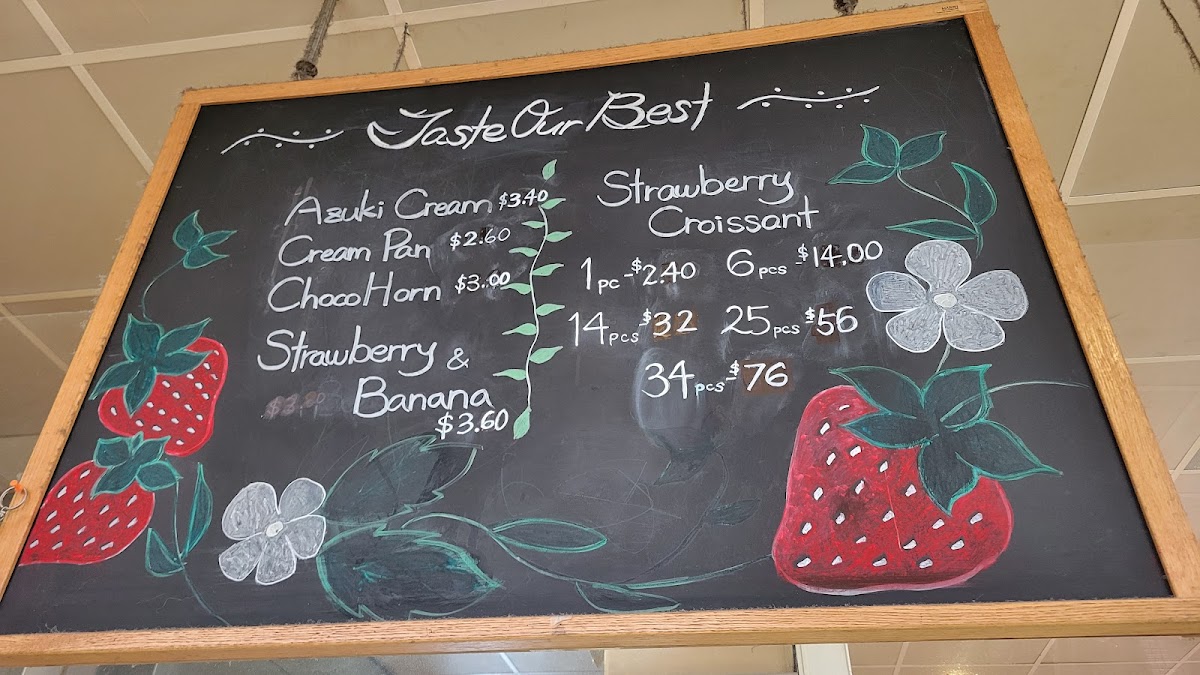 Taste Our Best
Azuki Cream $3.40
Cream Pan $2.60
Choco Horn $3.00
Strawberry &
Banana
$3.60
Strawberry
Croissant
1pc-$2.40 6pcs $14.00
14pcs-$32 25pcs-$56
34pcs-$76